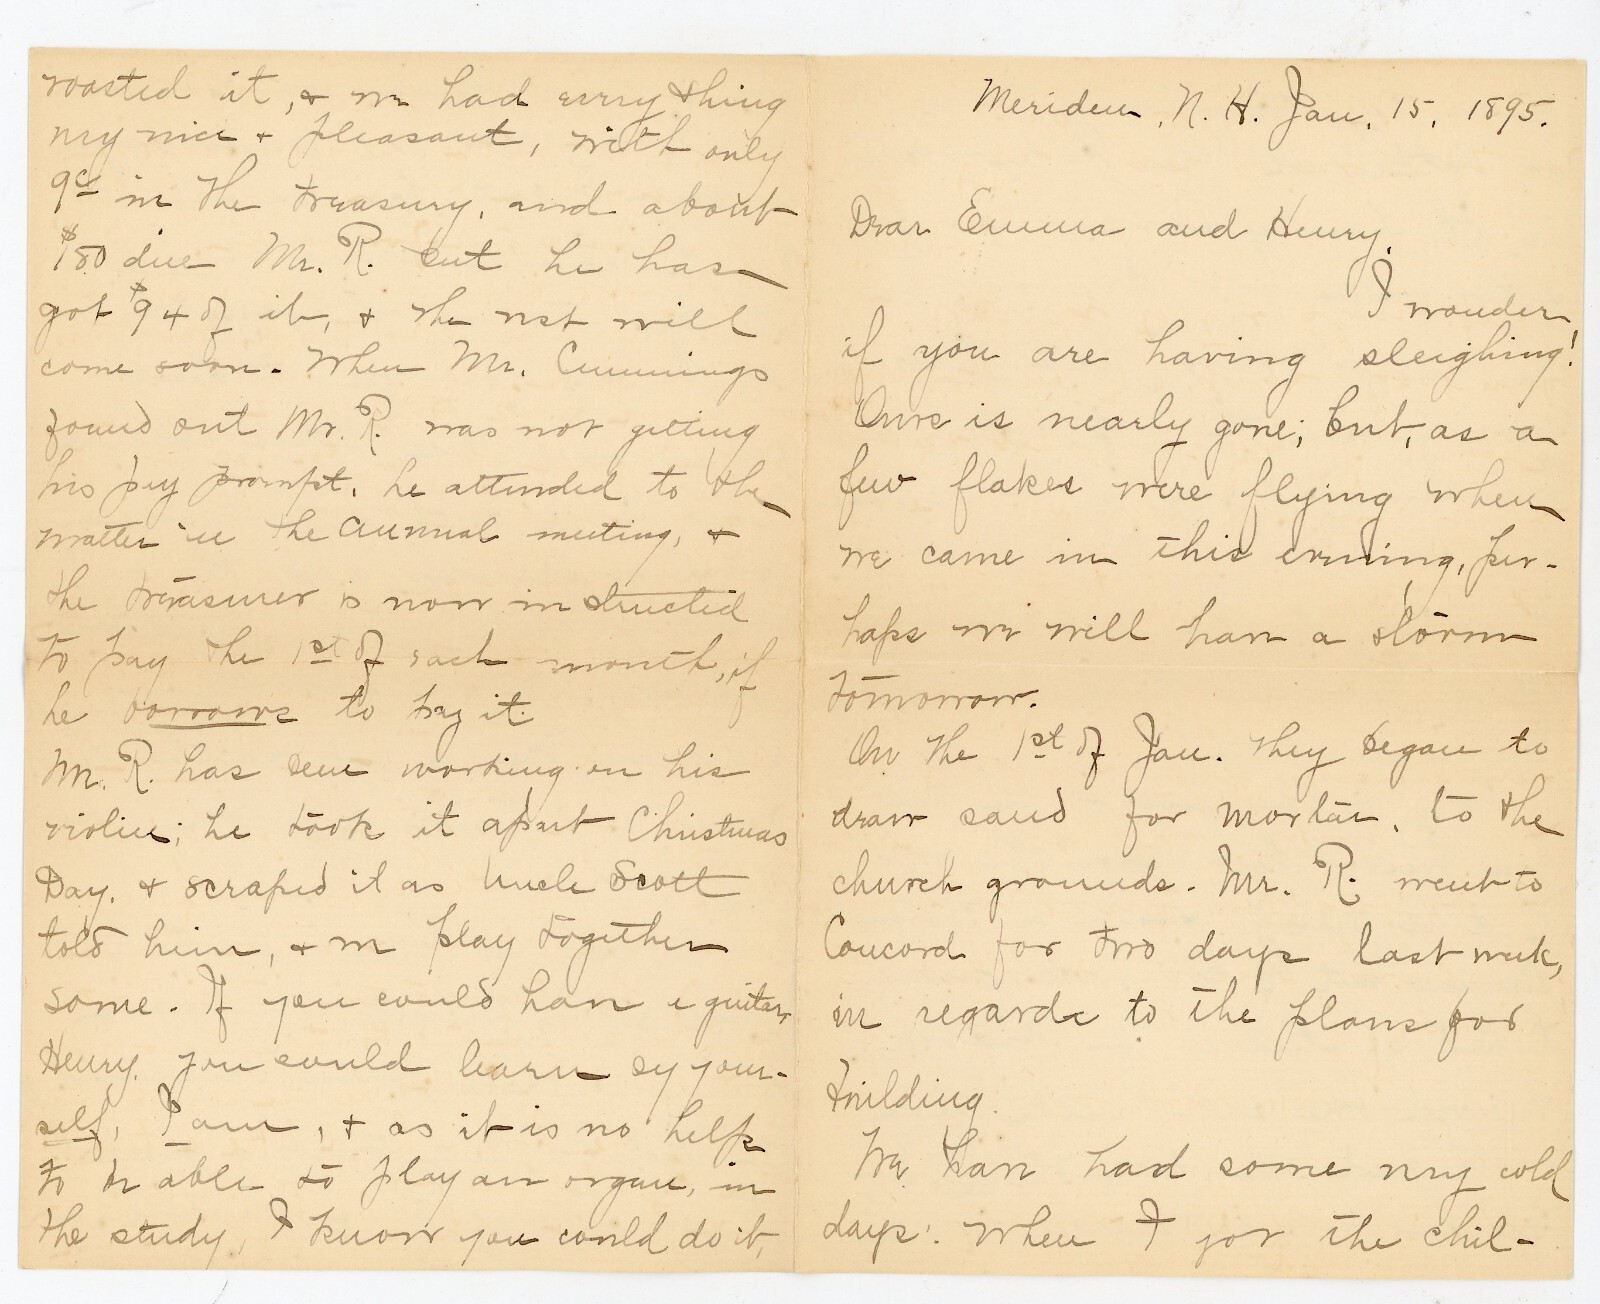 Meriden, N. H. Jan. 15, 1895.
Dear Emma and Henry,
I wonder
if you are having sleighing!
Ours is nearly gone; but, as a
few flakes were flying when
we came in this evening, per-
haps we will have a storm
tomorrow.
On the 1st of Jan. they began to
draw sand for mortar, to the
church grounds. Mr. R. went to
Concord for two days last week,
in regards to the plans for
building.
We have had some very cold
days: when I got the chil-
roasted it, & we had everything
very nice & pleasant, with only
9c in the treasury, and about
$180 due Mr. R. but he has
got $94 of it, & the rest will
come soon. When Mr. Cummings
found out Mr. R. was not getting
his pay prompt, he attended to the
matter in the annual meeting, &
the treasurer is now instructed
to pay the 1st of each month, if
he borrows to pay it.
Mr. R. has been working on his
violin; he took it apart Christmas
Day, & scraped it as Uncle Scott
told him, & we play together
some. If you could have a guitar,
Henry, you could learn by your-
self, I am, & as it is no help
to be able to play an organ, in
the study, I know you could do it,